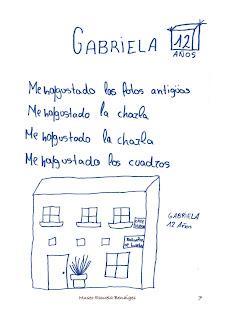 GABRIELA 12
AÑOS
Me ha gustado las fotos antigüas
Me ha gustado la charla
Me ha gustado la charla
Me ha gustado los cuadros
GABRIELA
12 Años
Museo Escuela Benalges
7